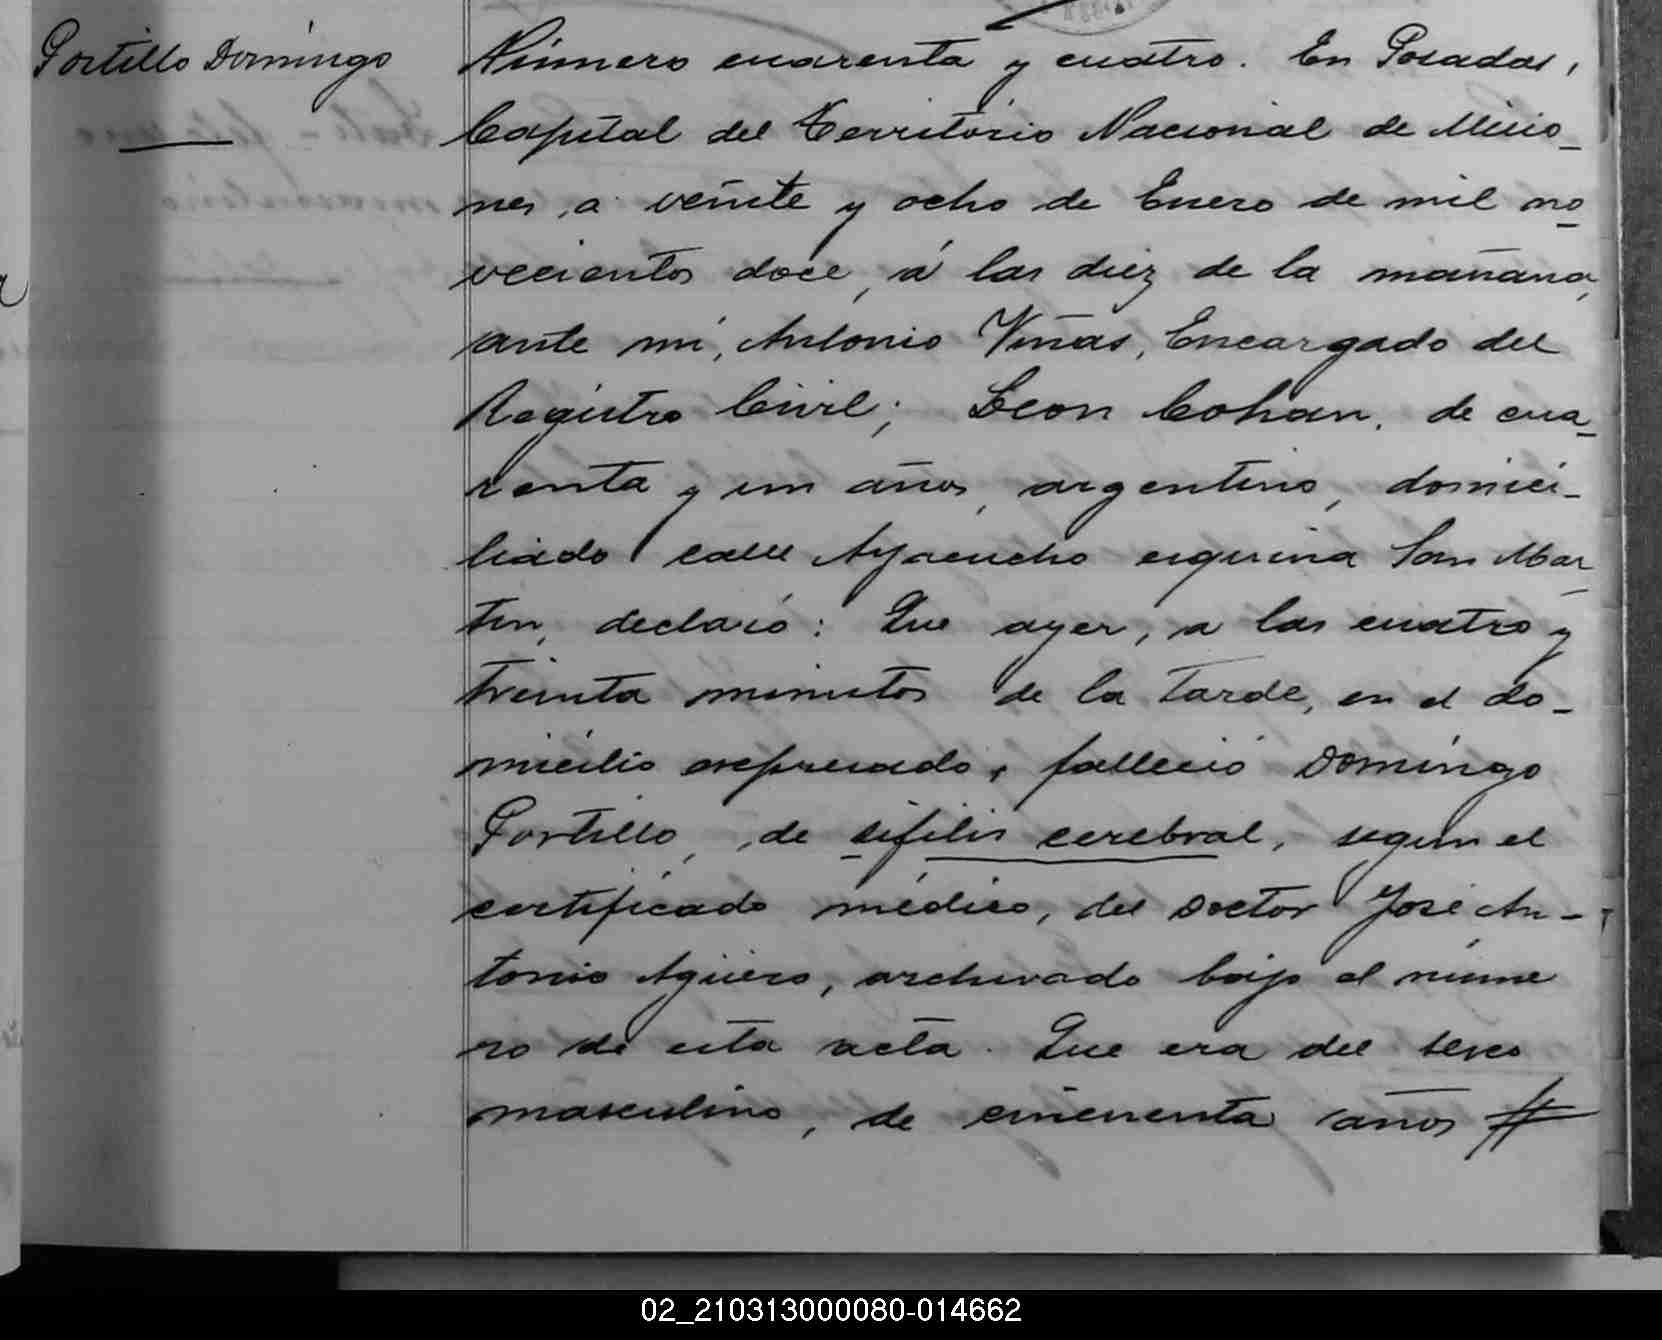 Portillo Domingo
Número cuarenta y cuatro. En Posadas,
Capital del Territorio Nacional de Misio_
nes, a veinte y ocho de Enero de mil no_
vecientos doce, á las diez de la mañana,
ante mí, Antonio Viñas, Encargado del
Registro Civil; Leon Cohan, de cua_
renta y un años, argentino, domici_
liado calle Ayacucho esquina San Mar_
tin, declaró: Que ayer, a las cuatro y
treinta minutos de la tarde, en el do_
micilio expresado, falleció Domingo
Portillo, de sifilis cerebral, segun el
certificado médico, del Doctor José An_
tonio Agüero, archivado bajo el núme
ro de esta acta. Que era del sexo
masculino, de cincuenta años #
02_210313000080-014662